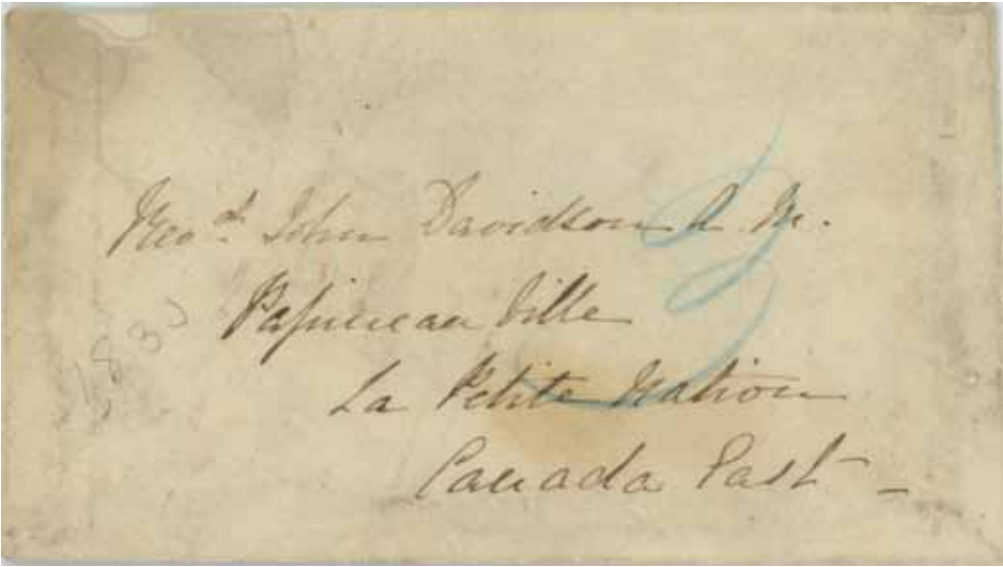 Revd. John Davidson A. M.
Papineau Ville
La Petite Nation
Canada East -